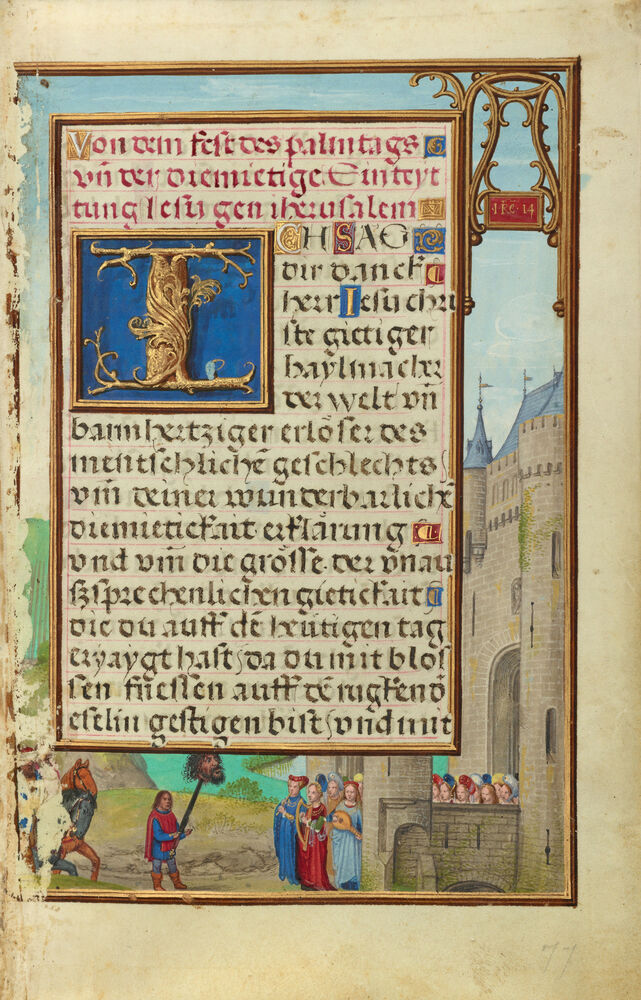 Von dem fest des palmtags
vn̄ der diemietige Sinreyt
tung Iesu gen iherusalem
ICH SAG
dir danck
herr Iesu chri
ste gietiger
haylmacher
der welt vn̄
barmhertziger erlöser des
mentschlichē geschlechts
vm̄ deiner wunderbarlichē
diemietickait erklärung
vnd vm̄ die grösse der vnau
ßsprechenlichen gietickait
die du auff dē heutigen tag
erzaygt hast, da du mit blos
sen fuessen auff dē rugken d̄
eselin gestigen bist, vnd mit
77